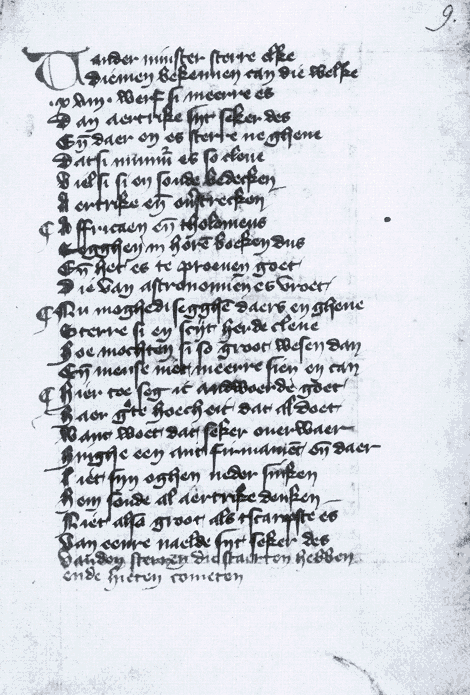 9.
Vander minster sterre elke
Diemen bekennen can die welke
.xviij. werf si meerre es
Dan aertrike sijt seker des
Eñ daer en es sterre ne ghene
Dat si min es so clene
Viel si si en soude bedecken
Aertrike eñ onstrecken
Affricaen eñ tholomeus
Segghen in horē boeken dus
Eñ het es te proeuen goet
Die van astronomien es vroet
Nu moghedi segghē daers en ghene
Sterre si en scijt herde clene
Hoe mochten si so groot wesen dan
Eñ mense niet meerre sien en can
Hier toe seg ic andwoerde goet
Haer gte hoecheit dat al doet
Want woet dat seker ouerwaer
Hinghe een ant firmamēt eñ daer
Liet sijn oghen neder sinken
Hem soude al aertrike denken
Niet alsa groot als tscarpste es
Van eenre naelde sijt seker des
Vanden sterren die staerten hebben
ende hieten cometen